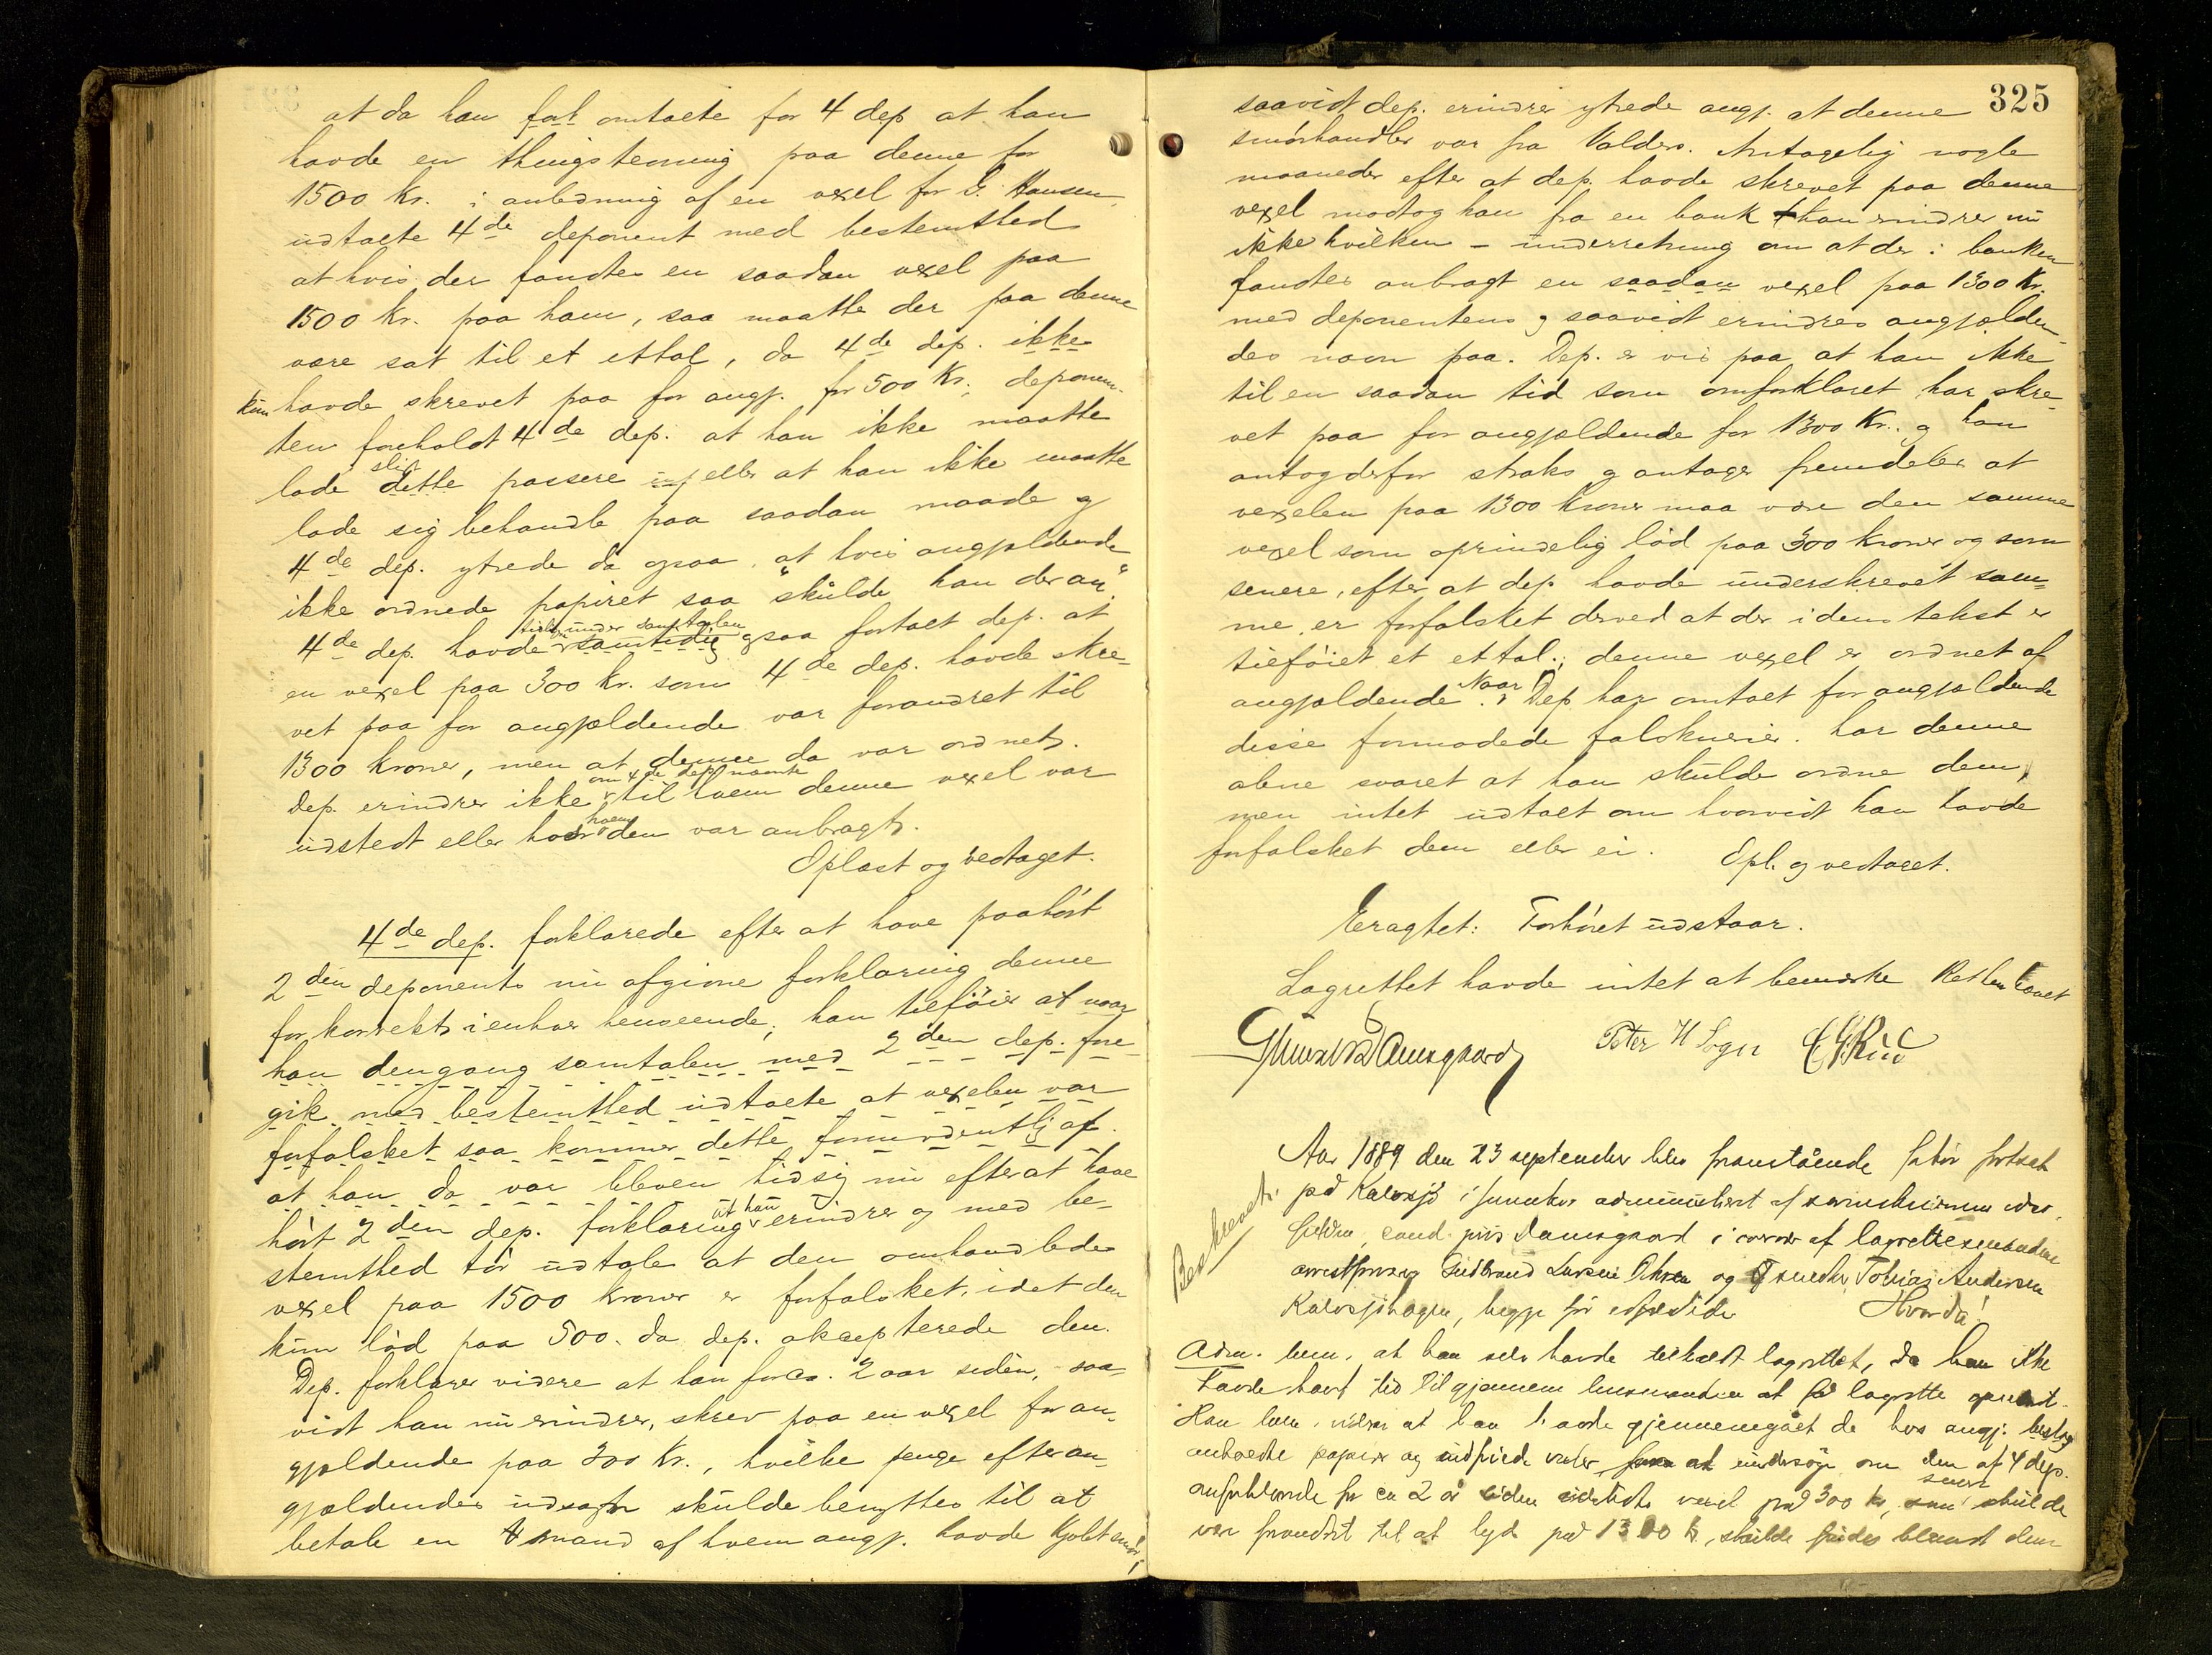 at da han talte for 4 dep at han
havde en thingstevning paa denne for
1500 kr. i anledning af en vexel for G. Hansen,
udtalte 4de deponent med bestemthed
at hvis der fandtes en saadan vexel paa
1500 kr. paa ham, saa maatte der paa denne
være sat til et ettal, da 4de dep. ikke
kun havde skrevet paa for angj. for 500 Kr.; deponen-
ten foreholdt 4de dep. at han ikke maatte
lade slig dette passere eller at han ikke maatte
lade sig behandle paa saadan maade og
4de dep. ytrede da ogsaa, at hvis angjældende
ikke ordnede papiret saa "skulde han deran".
4de dep. havde under samtalen samtidig ogsaa fortalt dep. at
en vexel paa 300 kr. som 4de dep. havde skre-
vet paa for angjældende var forandret til
1300 kroner, men at denne da var ordnet.
Dep. erindrer ikke om 4de dep. nævnte til hvem denne vexel var
udstedt eller hos hvem den var anbragt.
Oplæst og vedtaget.
4de dep. forklarede efter at have paahørt
2den deponents nu afgivne forklaring denne
for korrekt i enhver henseende; han tilføier at naar
han dengang samtalen med 2den dep. fore-
gik med bestemthed udtalte at vexelen var
forfalsket saa kommer dette formodentlig af
at han da var bleven
hørt 2den dep. forklaring at han erindrer og med be-
stemthed tør udtale at den omhandlede
vexel paa 1500 kroner er forfalsket, idet den
kun lød paa 500 da dep. aksepterede den.
Dep. forklarer videre at han for ca. 2 aar siden, saa-
vidt han nu erindrer, skrev paa en vexel for an-
gjældende paa 300 Kr., hvilke penge efter an-
gjældendes udsagn skulde benyttes til at
betale en mand af hvem angj. havde kjøbt smør,
325
saavidt dep. erindrer ytrede angj. at denne
smørhandler var fra Valders. Antagelig nogle
maaneder efter at dep. havde skrevet paa denne
vexel modtog han fra en bank han erindrer nu
ikke hvilken - underretning om at der i banken
fandtes anbragt en saadan vexel paa 1300 Kr.
med deponentens og saavidt erindres angjælden-
des navn paa. Dep. er vis paa at han ikke
til en saadan tid som omforklaret har skre-
vet paa for angjældende for 1300 Kr. og han
antog derfor straks og antager fremdeles at
vexelen paa 1300 kroner maa være den samme
vexel som oprindelig lød paa 300 kroner og som
senere, efter at dep. havde underskrevet sam-
me, er forfalsket derved at der i dens tekst er
tilføiet et ettal; denne vexel er ordnet af
angjældende. Naar Dep. har omtalt for angjældende
disse formodede falsknerier, har denne
alene svaret at han skulde ordne dem,
men intet udtalt om hvorvidt han havde
forfalsket dem eller ei. Opl. og vedtaget.
Eragtet: Forhøret udstaar.
Lagrettet havde intet at bemærke Retten hævet
Damsgaard Peter H Sogn
Aar 1889 den 23 september blev framstående forhør fortsat
på Kalvsjø i Jevnaker administreret af sorenskriverens edsv.
fuldm, cand. juris Damsgaard i nærvær af lagrettesmændene
Gulbrand Larsen og Tobias Andersen
Kalvsjøhagen, begge før edfæstede Hvorda!
Beskrevet.
Adm. bem. at han selv havde tilkaldt lagrettet, da han ikke
havde havt tid til gjennem lensmanden at få lagrette opnævnt.
Han bem. videre at han havde gjennemgået de hos angj. beslag
anholdte papirer og indfriede vexler for at undersøge om den af 4 dep.
omforklarede for ca 2 år siden udstedte vexel på 300 kr, som senere skulde
være forandret til at lyde på 1300 kr., skulde findes blandt dem